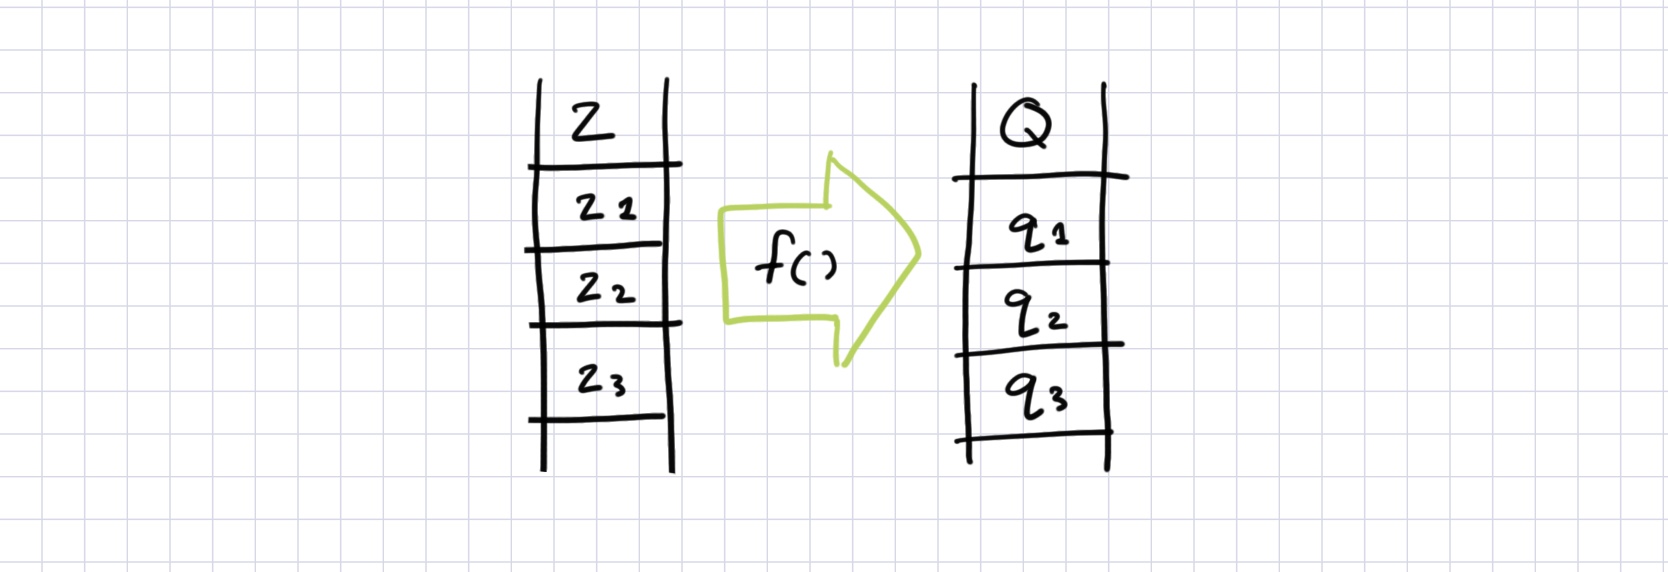 Z
z1
z2
z3
f()
Q
q1
q2
q3